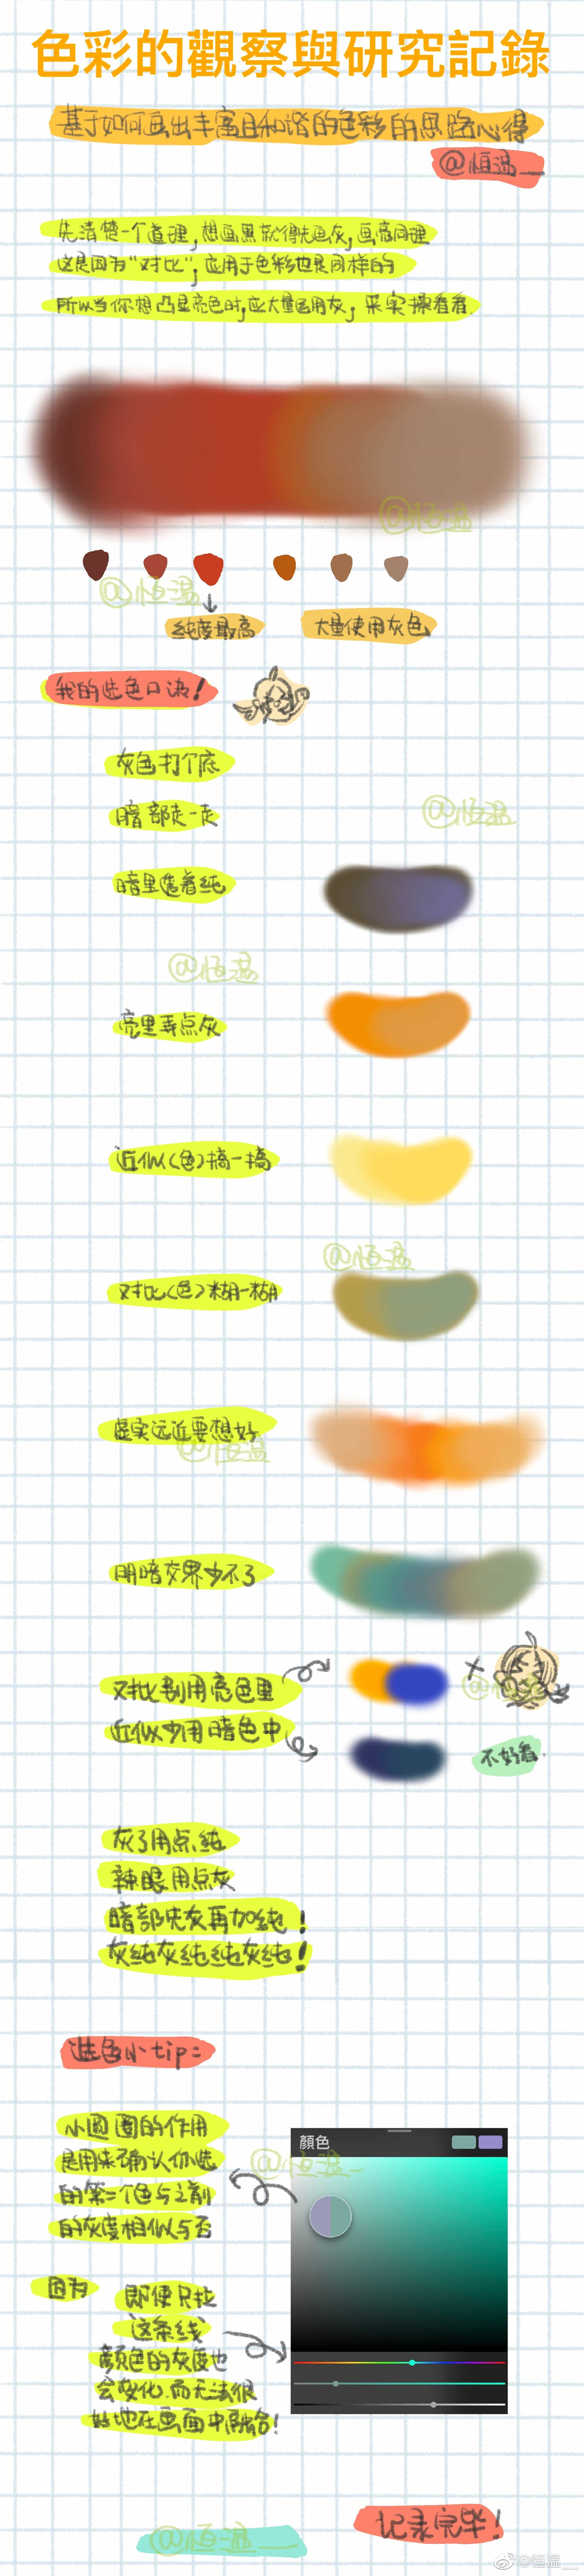 色彩的觀察與研究記錄
基于如何画出丰富且和谐的色彩的思路心得
@恒温__
先清楚一个道理,想画黑就得先画灰,画亮同理
这是因为"对比",应用于色彩也是同样的
所以当你想凸显亮色时,应大量运用灰,来实操看看.
@恒温
@恒温
纯度最高
大量使用灰色
我的选色口诀!
灰色打个底
暗部走一走
@恒温
暗里透着纯
@恒温
亮里弄点灰
近似(色)搞一搞
@恒温
对比(色)糊一糊
虚实远近要想好
@恒温
明暗交界少不了
对比别用亮色里
@恒温
近似少用暗色中
不好看.
灰了用点纯
辣眼用点灰
暗部先灰再加纯!
灰纯灰纯纯灰纯!
选色小tip:
小圆圈的作用
是用来确认你选
的第二个色与之前
的灰度相似与否
顏色
@恒温__
因为
即使只拉
这条线
颜色的灰度也
会变化而无法很
好地在画面中融合!
记录完毕!
@恒温__
@恒温__